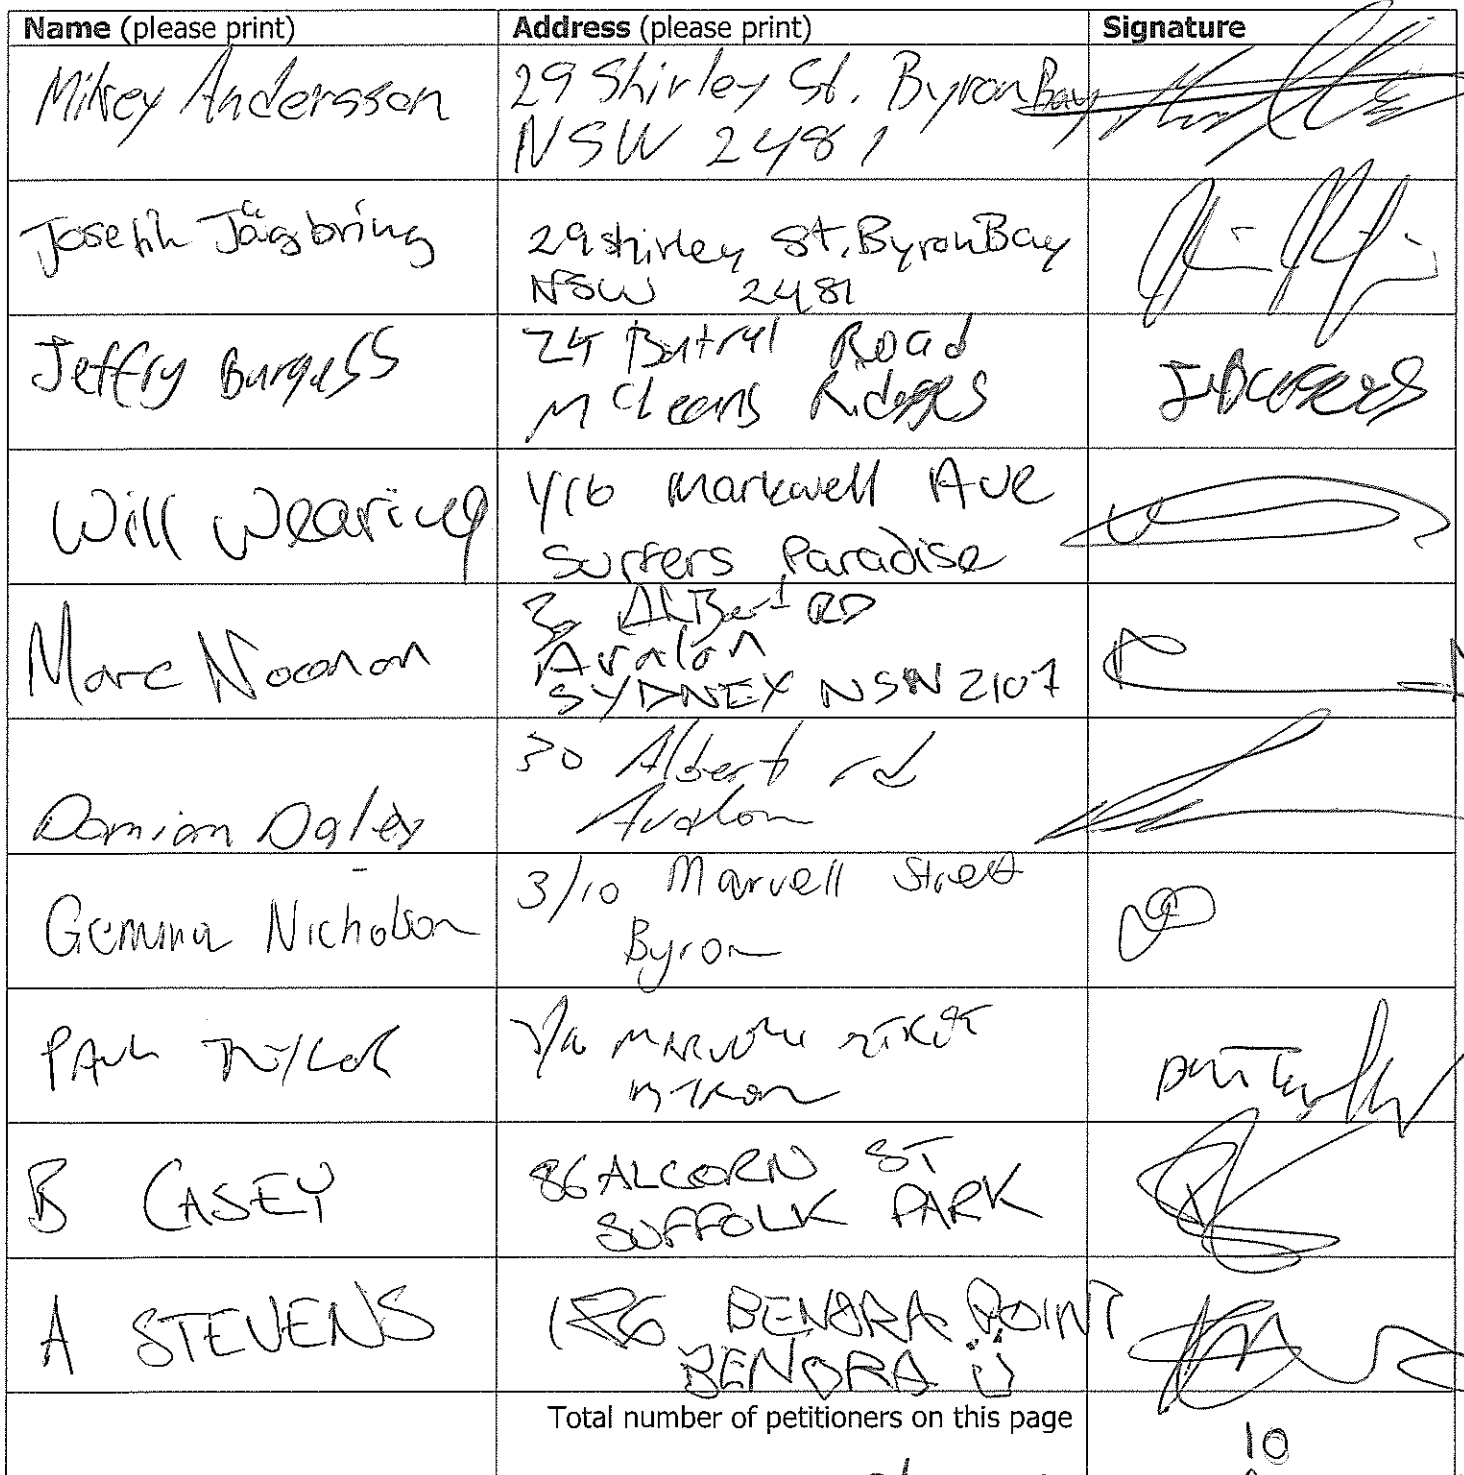 Name (please print) Address (please print) Signature
Mikey Andersson 29 Shirley St. Byron Bay
NSW 2481
Joseph Jägbring 29 shirley St. Byron Bay
NSW 2481
Jeffry Burgess 24 Road
McLeans Ridges
Will Wearing 1/16 Markwell Ave
Surfers Paradise
Marc Noonan Albert RD
Avalon
SYDNEY NSW 2107
Damian Daley 30 Albert rd
Avalon
Gemma Nicholson 3/10 Marvell Street
Byron
PAUL TAYLOR MARVELL STREET
BYRON
B CASEY 86 ALCORN ST
SUFFOLK PARK
A STEVENS 186 BENORA POINT
BENORA Ü
Total number of petitioners on this page 10